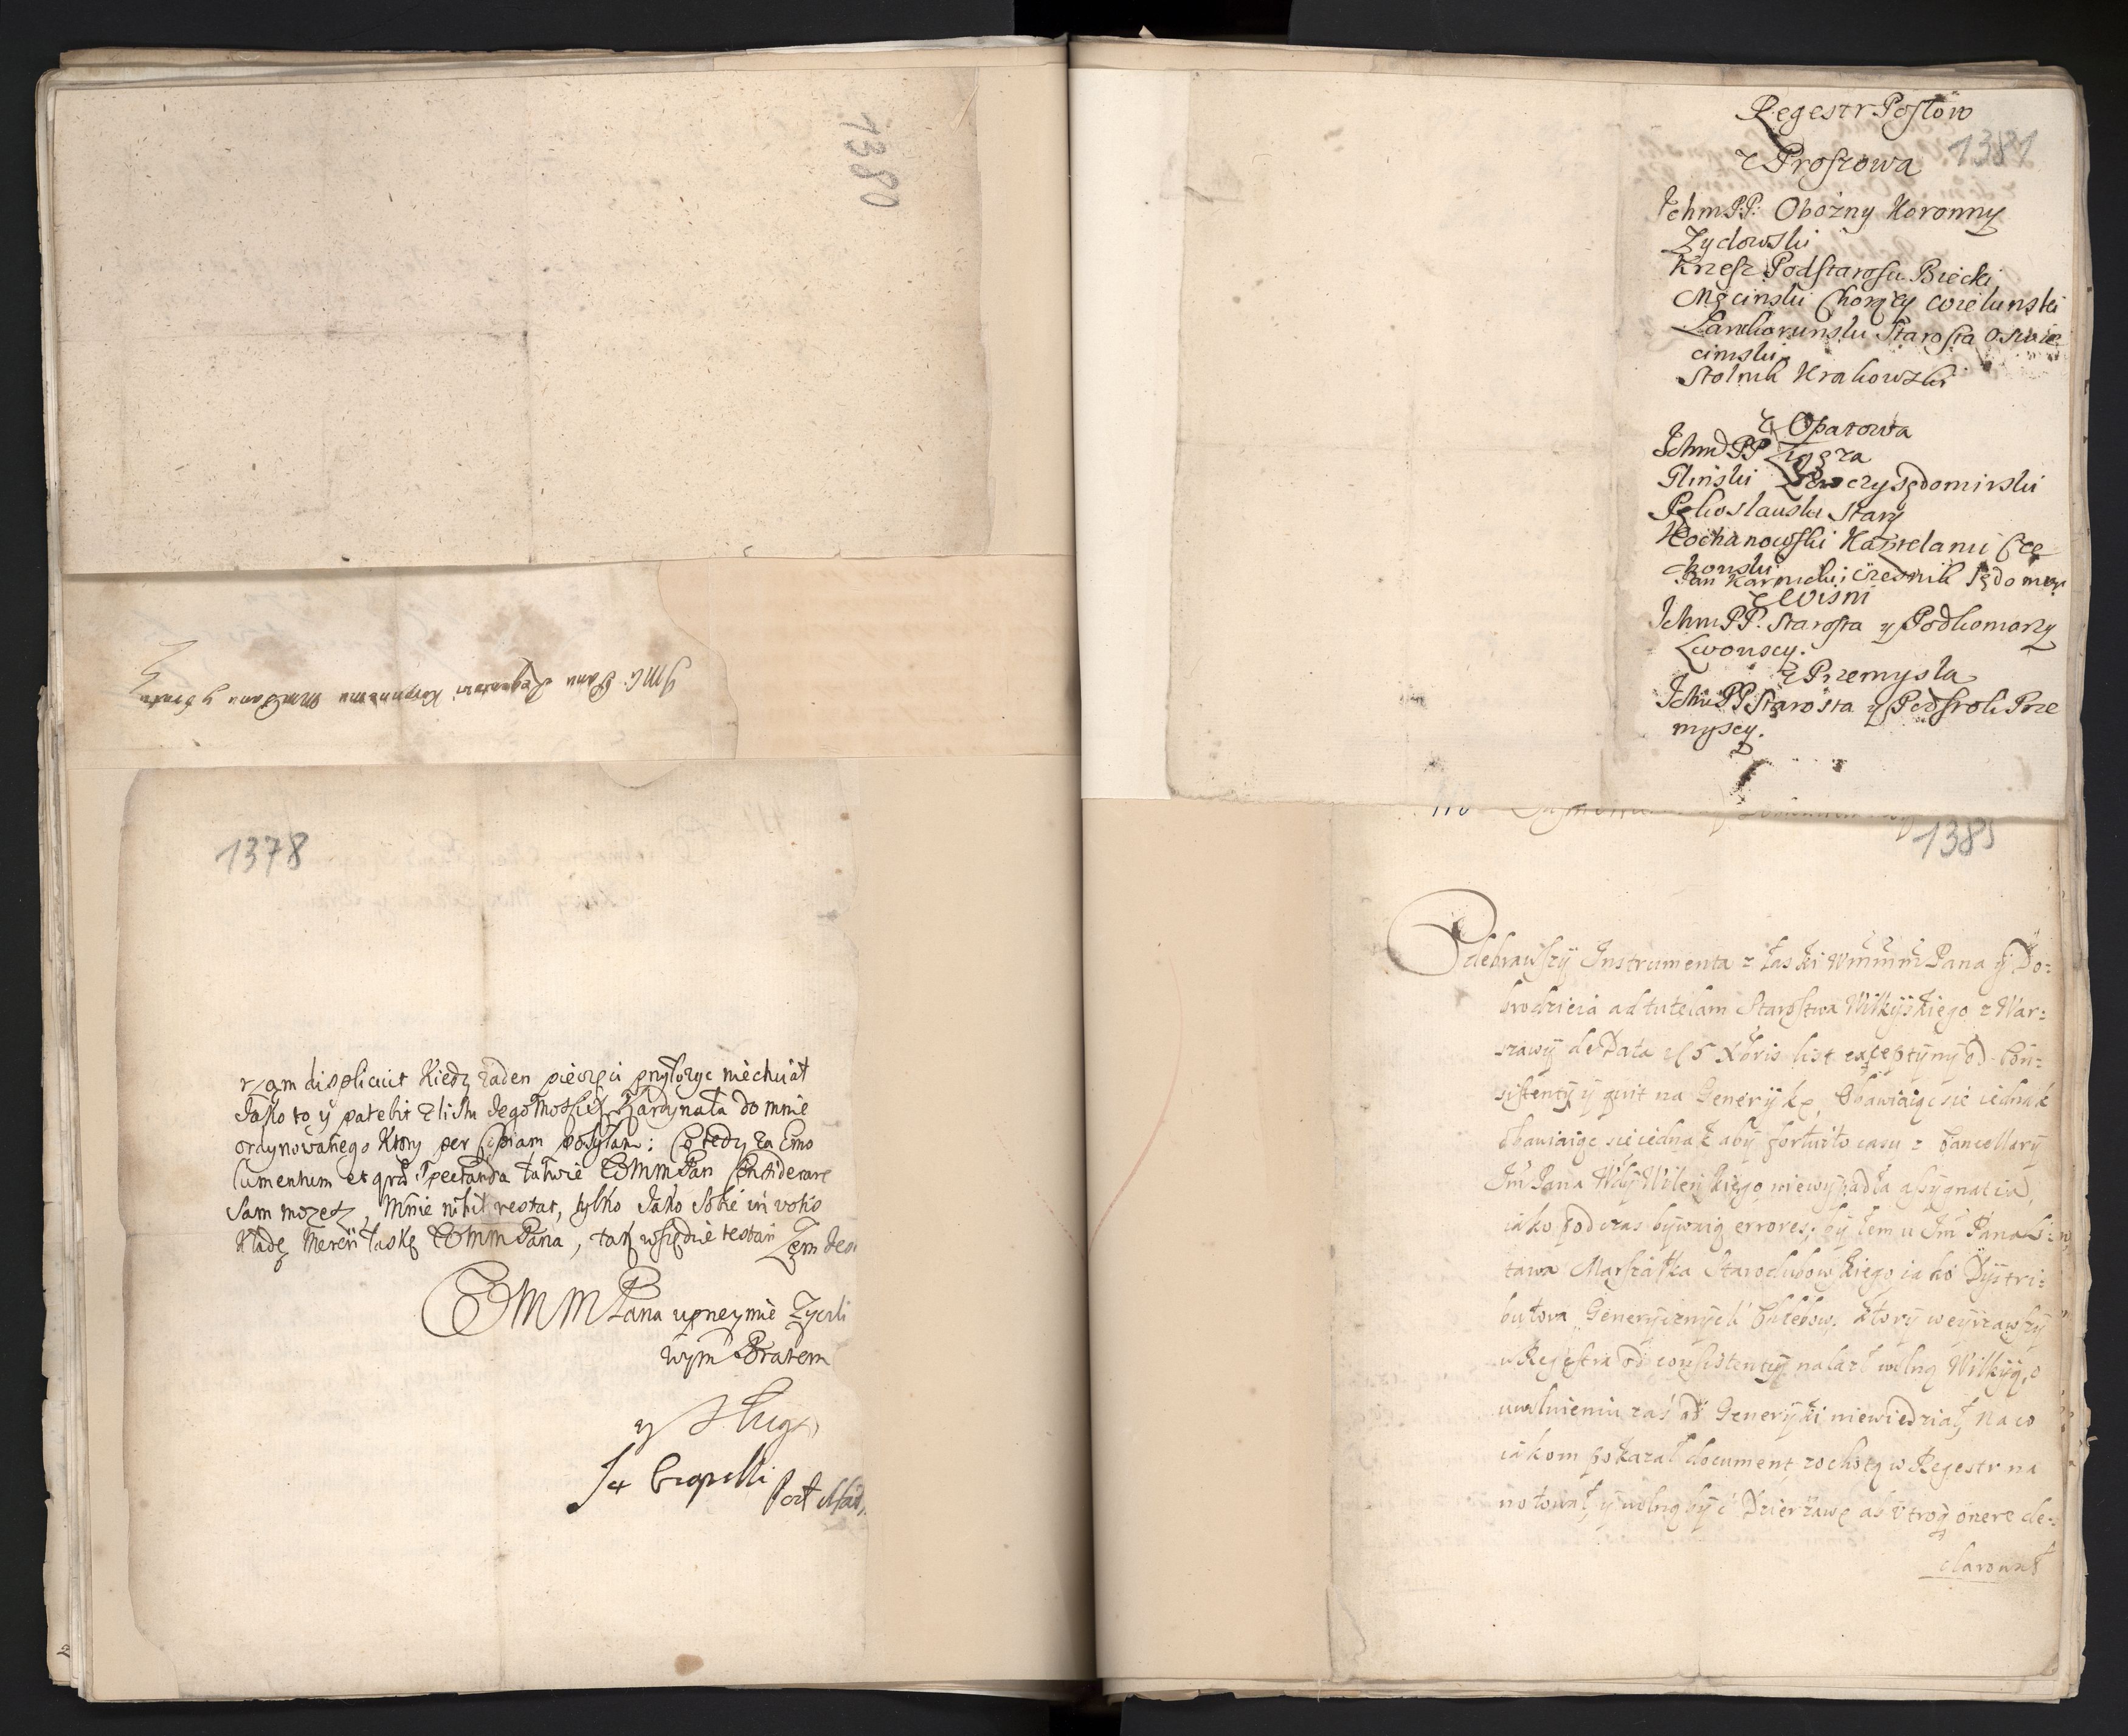 1380
JMci Panu Regentowi Koronnemu Mm Panu y Bratu
1378
displicuit Kiedy zaden pieczęci przyłozyc niechciał
Jako to ÿ patebit z listu Jegomości Kardynała do mnie
ordynowanego Ktory per Copiam posyłam: Co tedy za Emo
lumentum et spectanda łatwie WMMPan Considerare
Sam mozesz, Mnie nihil restat, tylko Jako sobie in votis
Kładę łaskę WMMPana, tak wszędzie Zem Jest
WMMPana uprzeymie Zyczli
wym Bratem
y Sługą
1381
Regestr Posłow
z Proszowa
Ichm PP. Obozny Koronny
Zydowski
Krzesz Podstarosci Biecki
Męcinski Chorązy wielunski
Lanckorunski Starosta Oswie
cimski
Stolnik Krakowski
z Opatowa
Ichm PP
Glinski Łowczy Sędomirski
Stary
Kochanowski Kasztelanic Cze
chowski
Pan Karnicki Czesnik Sędomir
z Wisni
Ichm PP. Starosta y Podkomorzy
Lwowscy.
z Przemysla
Ichm PP Starosta y Podstoli Prze
myscy.
1385
Odebrawszÿ Instrumenta z łaski Wmmm Pana ÿ Do=
brodzieia ad tutelam Starostwa Wilkÿskiego z War=
szawÿ de Data 5 Xbris list exceptÿnÿ od Con=
sistentÿ ÿ quit na Generÿkę, Obawiaiąc sie iednak
obawiaiąc sie iednak abÿ fortuito casu z Cancellarÿ
Jm Pana WdÿWilenskiego niewÿpadła assÿgnatia,
iako podczas bÿwaią errores, bÿłem u Jm Pana
tawa Marszałka Starodubowskiego iako Dÿstri=
butora Generÿcznÿch Chlebow, Ktorÿ weÿrzawszÿ
w Regestra od consistentÿ nalazł wolną Wilkÿą, o
uwolnieniu zaś od Generÿki niewiedział, na co
iakom pokazał document zochotą w Regestr na
notował, ÿ wolną bÿć Dzierzawę ab utroq onere de=
clarował